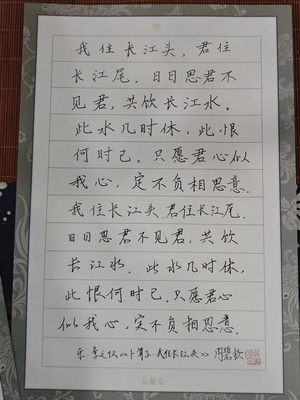 我住长江头,君住
长江尾。日日思君不
见君,共饮长江水。
此水几时休,此恨
何时已。只愿君心似
我心,定不负相思意。
我住长江头,君住长江尾。
日日思君不见君,共饮
长江水。此水几时休,
此恨何时已。只愿君心
似我心,定不负相思意。
乐 李之仪《卜算子·我住长江头》